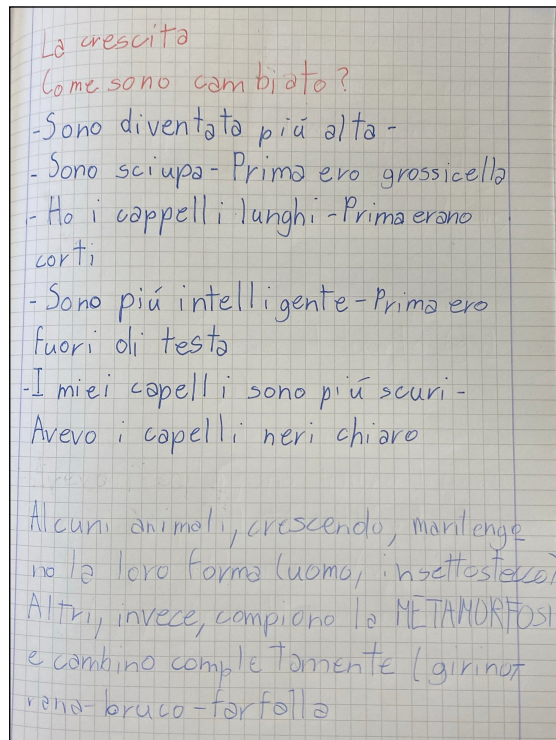 La crescita
Come sono cambiato?
-Sono diventata piú alta-
- Sono sciupa-Prima ero grossicella
- Ho i cappelli lunghi-Prima erano
corti
- Sono piú intelligente-Prima ero
fuori di testa
-I miei capelli sono piú scuri-
Avevo i capelli neri chiaro
Alcuni animali, crescendo, mantengo
no la loro forma (uomo, insettostecco)
Altri, invece, compiono la METAMORFOSI
e cambino completamente (girino
rana-bruco-farfalla